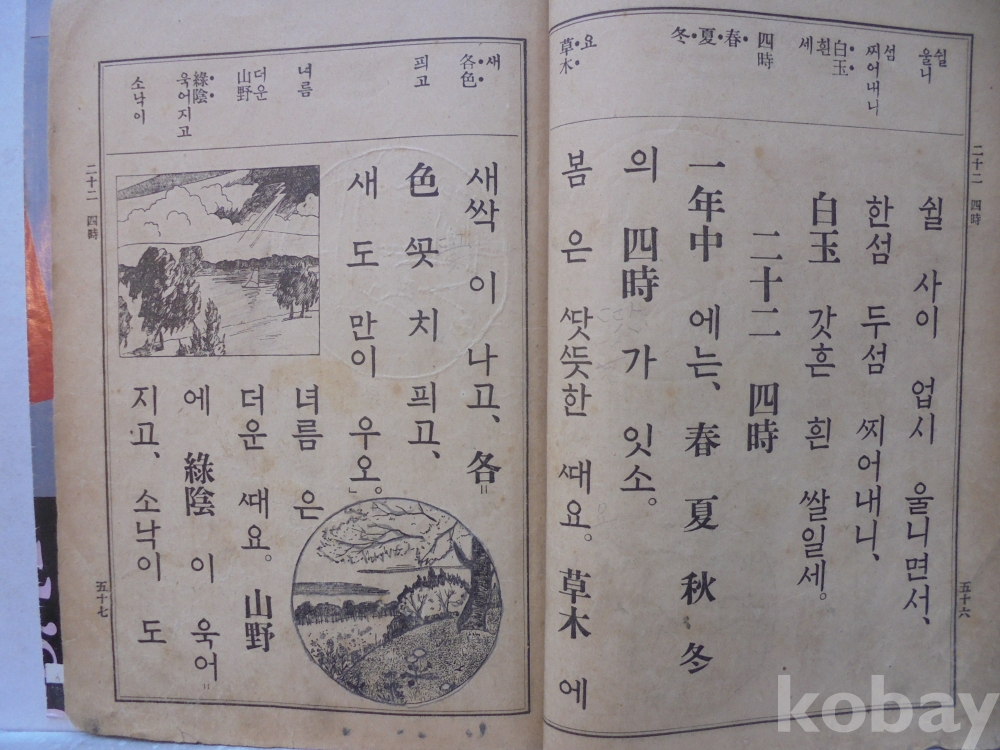 쉴
울니
섬
찌어내니
白玉
흰
세
四時
春•夏•冬•
요
草木
二十二 四時
쉴 사이 업시 울니면서、
한섬 두섬 찌어내니、
白玉 갓흔 흰 쌀일세。
二十二 四時
一年中 에는、春 夏 秋 冬
의 四時 가 잇소。
봄 은 ᄯᅡᆺᄯᅳᆺ한 ᄯᅢ요。草木 에
五十六
새
各色
픠고
녀름
더운
山野
綠陰
욱어지고
소낙이
새싹 이 나고、各
色 ᄭᅩᆺ 치 픠고、
새 도 만이 우오。
녀름 은
더운 ᄯᅢ요。山野
에 綠陰 이 욱어
지고、소낙이 도
二十二 四時
五十七
kobay